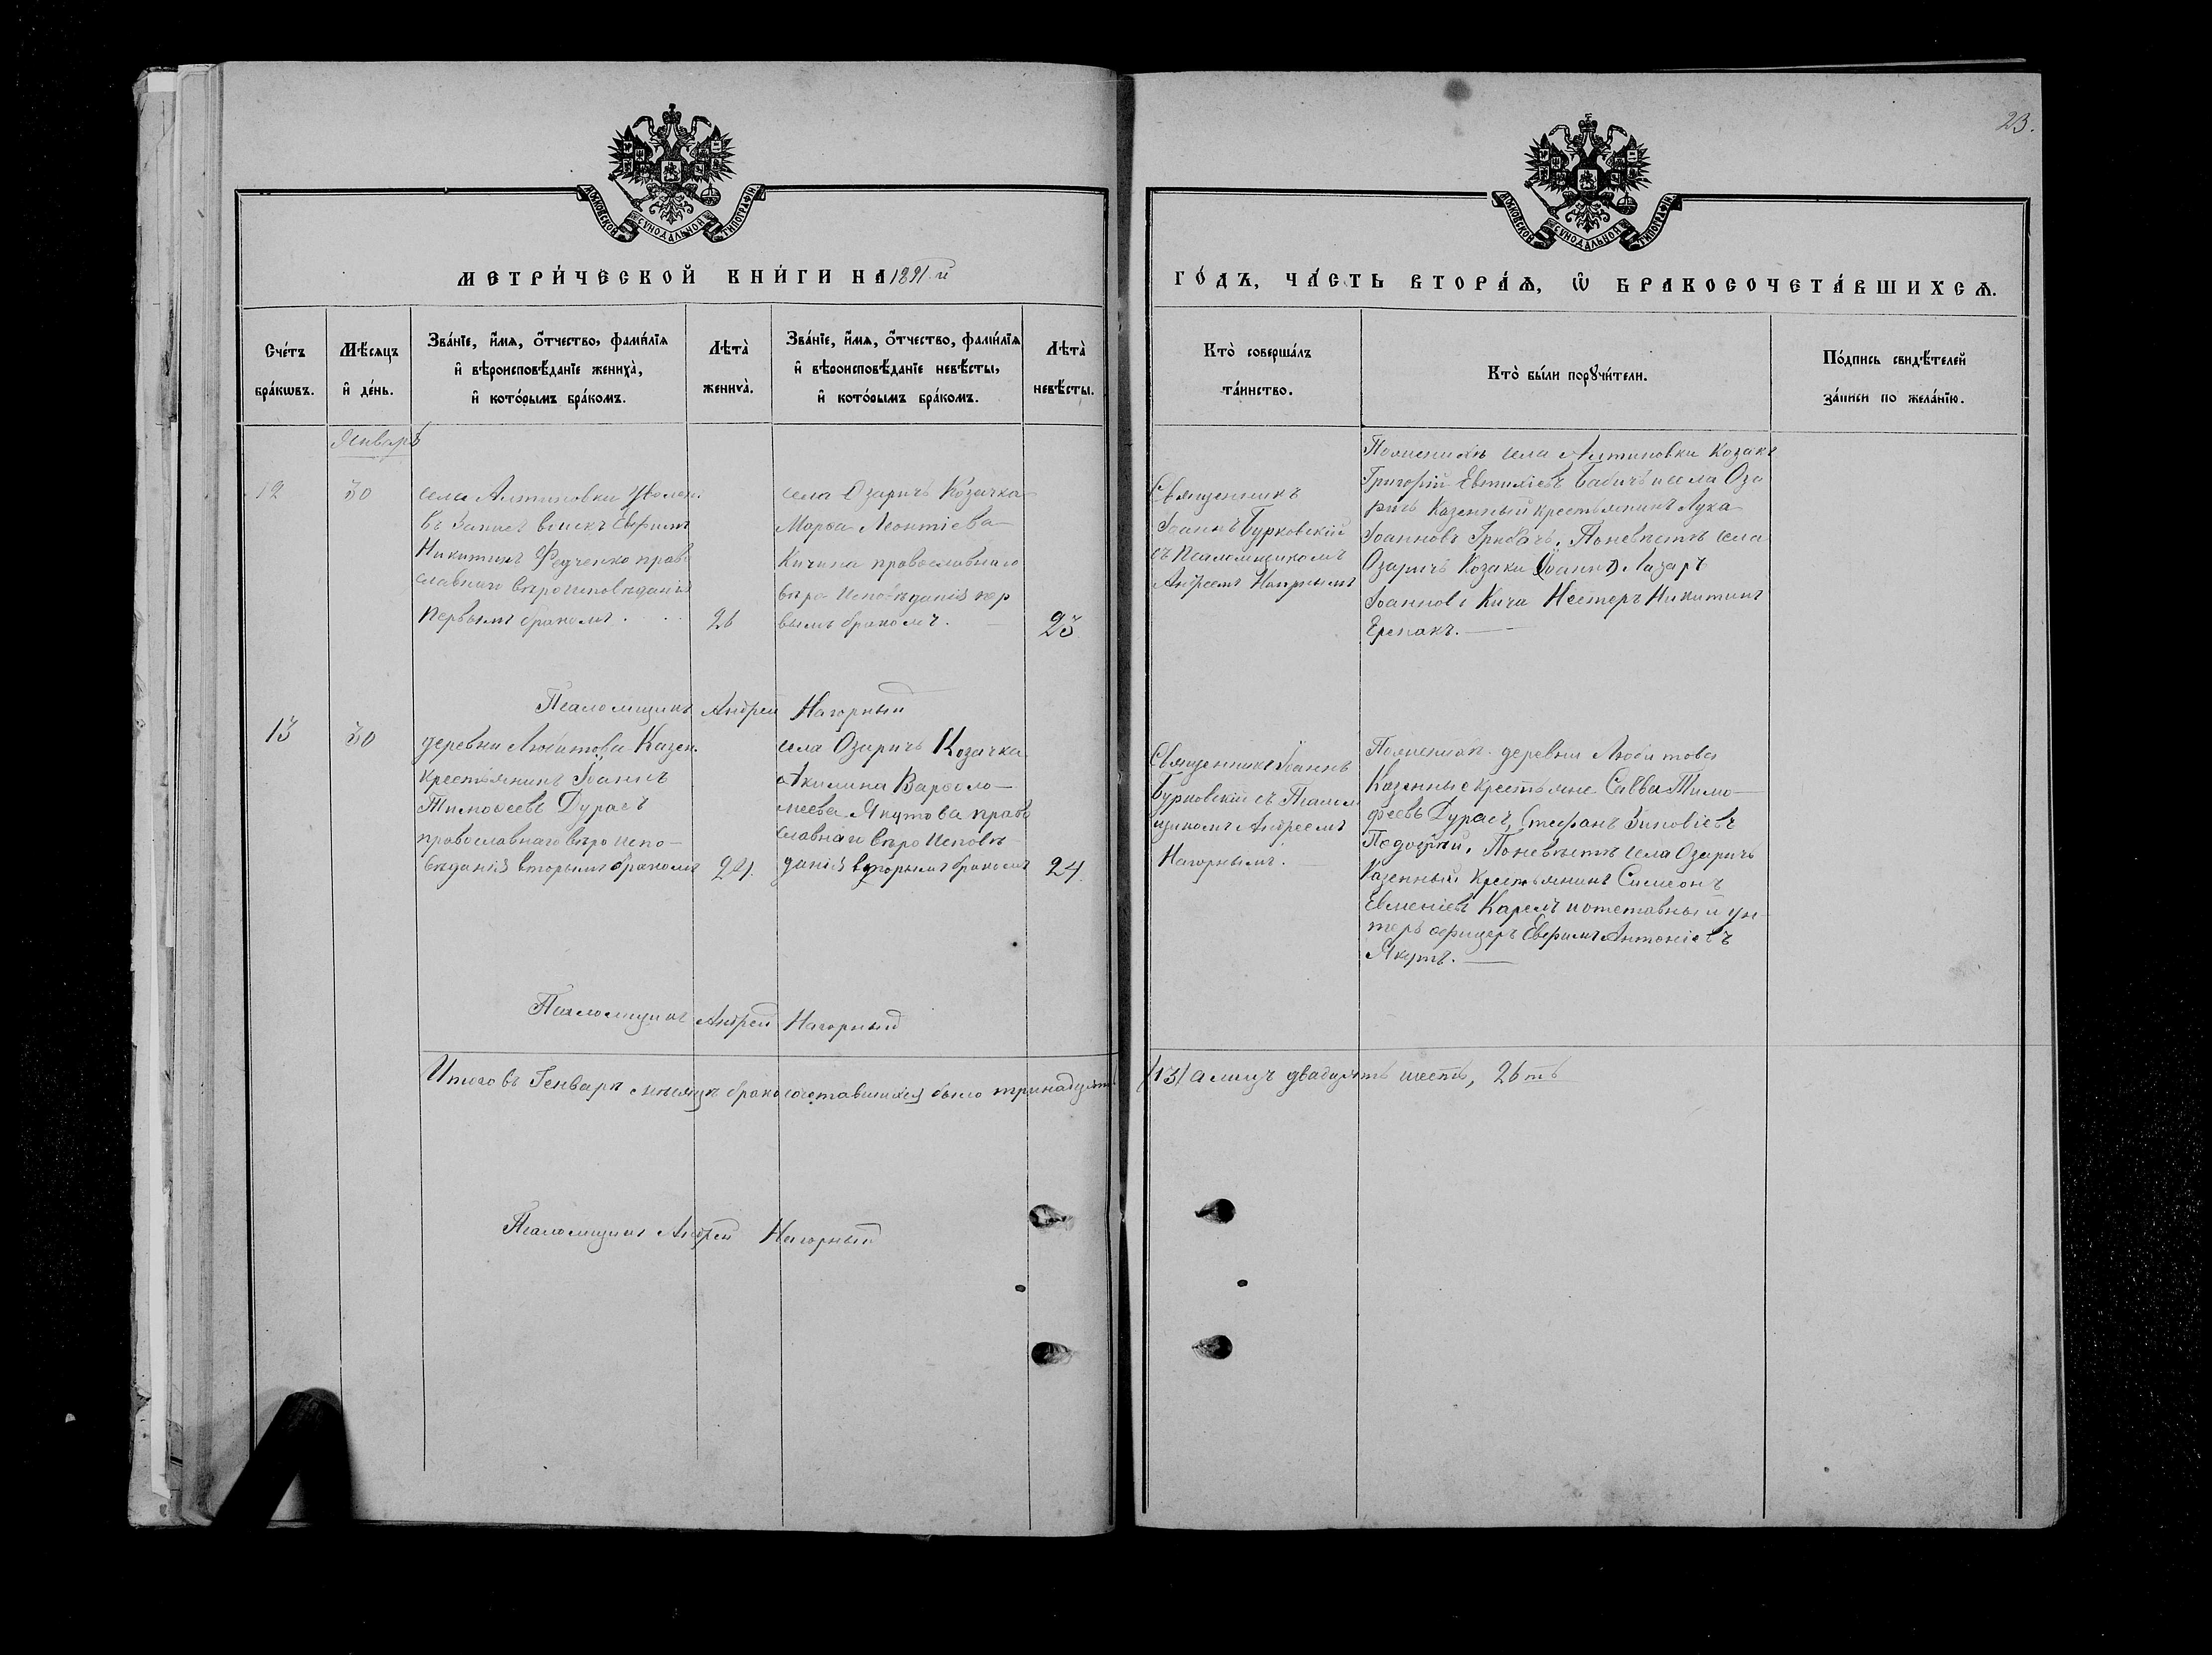 23.
МОСКОВСКОЙ СѴНОДАЛЬНОЙ ТИПОГРАФІИ
МОСКОВСКОЙ СѴНОДАЛЬНОЙ ТИПОГРАФІИ
МЕТРИ́ЧЕСКОЙ КНИ́ГИ НА 1891 й
ГО́ДЪ, ЧА́СТЬ ВТОРА́Ѧ, Ѡ҆ БРАКОСОЧЕТА́ВШИХСѦ.
Сче́тъ
бра́кѡвъ.
Мѣ́сѧцъ
и҆ де́нь.
Зва́нїе, и҆́мѧ, ѻ҆́тчество, фами́лїѧ
и҆ вѣроисповѣ́данїе жениха̀,
и҆ кото́рымъ бра́комъ.
Лѣта̀
жениха̀.
Зва́нїе, и҆́мѧ, ѻ҆́тчество, фами́лїѧ
и҆ вѣроисповѣ́данїе невѣ́сты,
и҆ кото́рымъ бра́комъ.
Лѣта̀
невѣ́сты.
Кто̀ соверша́лъ
та́инство.
Кто̀ бы́ли порꙋчи́тели.
По́дпись свидѣ́телей
за́писи по жела́нїю.
Январь
12
30
села Алтиновки Уволен.
въ Запасъ войскъ Евфимъ
Никитинъ Федченко право
славнаго вѣроисповѣданія
первымъ бракомъ.
26
села Озаричъ Козачка
Марѳа Леонтіева
Кичина православнаго
вѣроисповѣданія пер
вымъ бракомъ.
23
Священникъ
Іоаннъ Бурковскій
съ Псаломщикомъ
Андреемъ Нагорнымъ
По женихѣ села Алтиновки Козакъ
Григорій Евтихіевъ Бабичъ и села Оза
ричъ Казенный крестьянинъ Лука
Іоанновъ Грибачъ. По невѣстѣ села
Озаричъ Козаки (Іоаннъ) Лазарь
Іоанновъ Кича Нестеръ Никитинъ
Ерепакъ.
Псаломщикъ Андрей Нагорный
13
30
деревни Любитова Казен.
крестьянинъ Іоаннъ
Тимоѳеевъ Дурасъ
православнаго вѣроиспо-
вѣданія вторымъ бракомъ
24.
села Озаричъ Козачка
Акилина Варѳоло-
меева Якутова право
славнаго вѣроисповѣ
данія вторымъ бракомъ
24.
Священникъ Іоаннъ
Бурковскій съ Псалом
щикомъ Андреемъ
Нагорнымъ.
По женихѣ деревни Любитова
Казенные крестьяне Савва Тимо-
феевъ Дурасъ, Стефанъ Зиновіевъ
По невѣстѣ села Озаричъ
Казенный крестьянинъ Симеонъ
Евменіевъ Карепъ и отставный ун-
теръ офицеръ Евфимъ Антоніевъ
Якутъ.
Псаломщикъ Андрей Нагорный
Итого въ Генварѣ мѣсяцѣ бракосочетавшихся было тринадцать (13) а лицъ двадцать шесть, 26ть
Псаломщикъ Андрей Нагорный